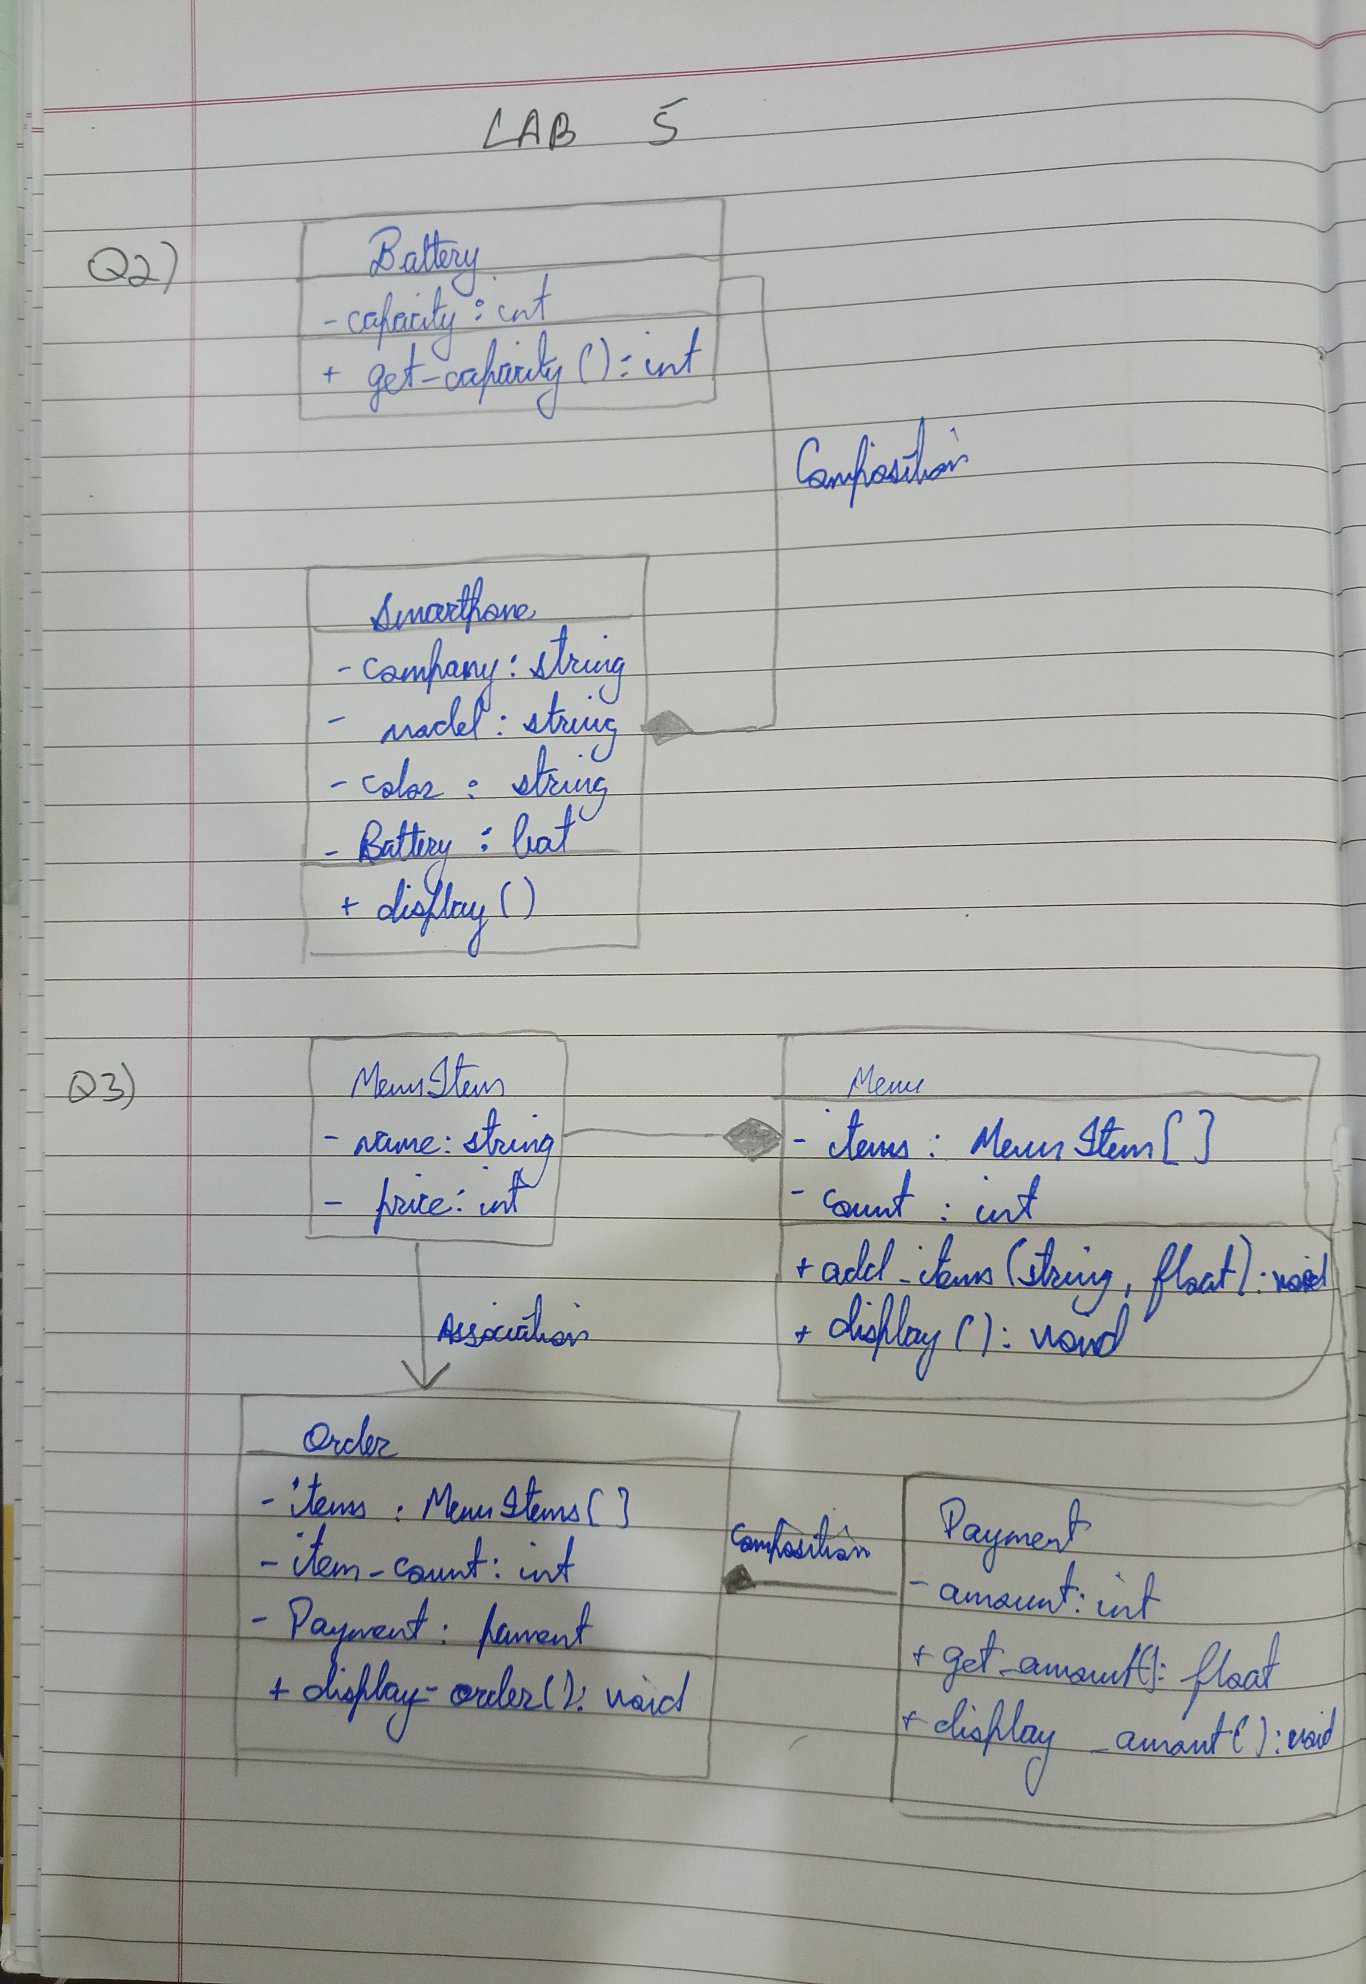 LAB 5
Q2)
Battery
- capacity : int
+ get_capacity() : int
Composition
Smarthone
- company : string
- model : string
- color : string
- Battery : bat
+ display()
Q3)
MenuItem
- name : string
- price : int
Menu
- items : MenuItem[]
- count : int
+ add_items(string, float) : void
+ display() : void
Association
Order
- items : MenuItems[]
- item_count : int
- Payment : pament
+ display_order() : void
Composition
Payment
- amount : int
+ get_amount() : float
+ display_amount() : void